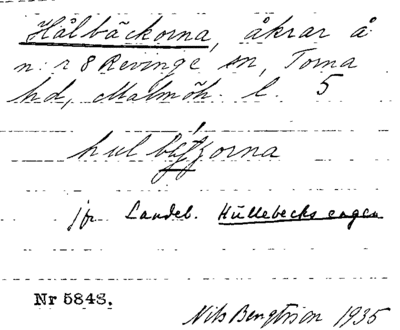 Hålbäckorna, åkrar å
n:r 8 Revinge sn, Torna
hd, Malmöh. l. 5
jfr Landeb. Hüllebecks engen
Nr 5843.
Nils Bengtsson 1935